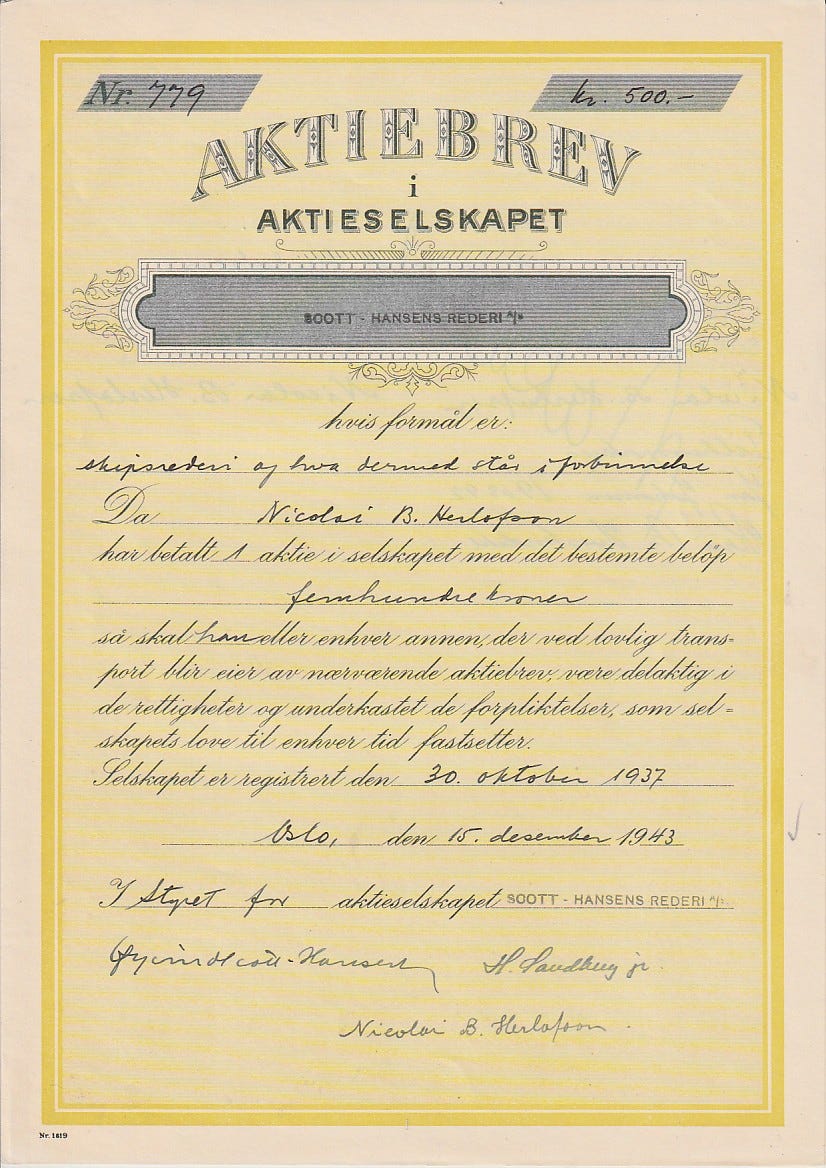 Nr. 779
kr. 500.-
AKTIEBREV
i
AKTIESELSKAPET
SCOTT - HANSENS REDERI A/S
hvis formål er:
skipsrederi og hva dermed står i forbinnelse
Da Nicolai B. Herlofson
har betalt 1 aktie i selskapet med det bestemte beløp
femhundre kroner
så skal han eller enhver annen, der ved lovlig trans=
port blir eier av nærværende aktiebrev, være delaktig i
de rettigheter og underkastet de forpliktelser, som sel=
skapets love til enhver tid fastsetter.
Selskapet er registrert den 30. oktober 1937
Oslo, den 15. desember 1943
I Styret for aktieselskapet SCOTT - HANSENS REDERI A/S
Øyvind Scott-Hansen H. Sandberg jr.
Nicolai B. Herlofson
Nr. 1819